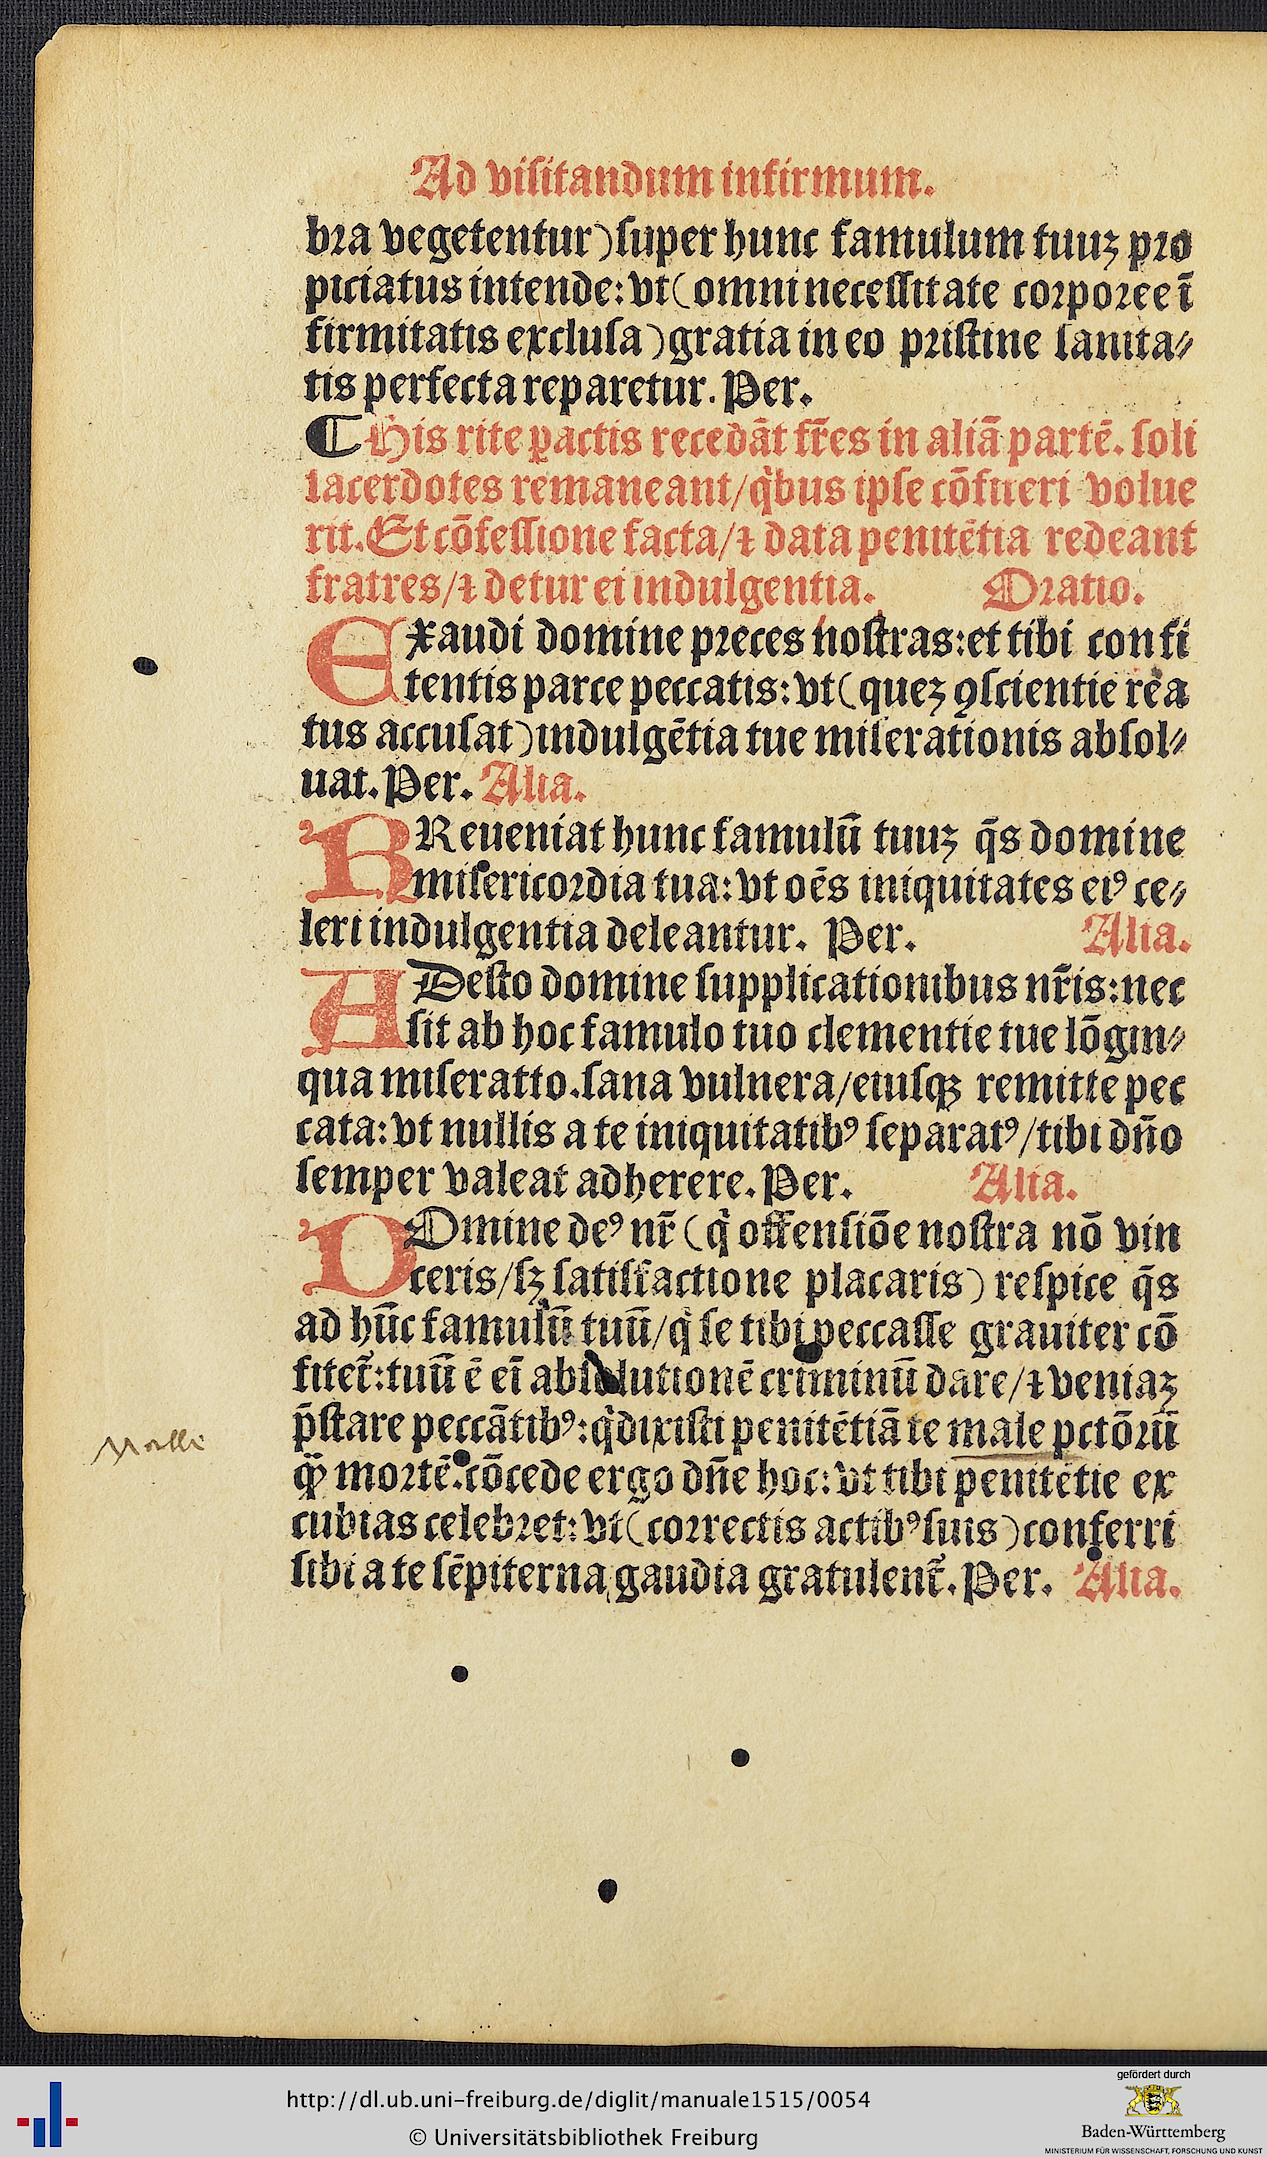 Ad visitandum infirmum.
bra vegetentur) super hunc famulum tuuʒ pro
piciatus intende: vt (omni necessitate corporee ī
firmitatis exclusa) gratia in eo pristine sanita⸗
tis perfecta reparetur. Per.
¶ His rite ꝑactis recedāt fr̄es in aliā partē. soli
sacerdotes remaneant/ qͥbus ipse cōfiteri volue
rit. Et cōfessione facta/ ⁊ data penitētia redeant
fratres/ ⁊ detur ei indulgentia. Oratio.
Exaudi domine preces nostras: et tibi confi
tentis parce peccatis: vt (queʒ ꝯscientie rea
tus accusat) indulgētia tue miserationis absol⸗
uat. Per. Alia.
PReueniat hunc famulū tuuʒ q̄s domine
misericordia tua: vt oēs iniquitates eiꝰ ce⸗
leri indulgentia deleantur. Per. Alia.
ADesto domine supplicationibus nr̄is: nec
sit ab hoc famulo tuo clementie tue lōgin⸗
qua miseratio. sana vulnera/ eiusqʒ remitte pec
cata: vt nullis a te iniquitatibꝰ separatꝰ/ tibi dn̄o
semper valeat adherere. Per. Alia.
DOmine deꝰ nr̄ (qͥ offensiōe nostra nō vin
ceris/ sʒ satisfactione placaris) respice q̄s
ad hūc famulū tuū/ qͥ se tibi peccasse grauiter cō
fitet᷑: tuū ē eī absolutionē criminū dare/ ⁊ veniaʒ
p̄stare peccātibꝰ: qͥ dixisti penitētiā te male pctōrū
Malle
qȝ mortē. cōcede ergo dn̄e hoc: vt tibi penitētie ex
cubias celebret: vt (correctis actibꝰ suis) conferri
sibi a te sēpiterna gaudia gratulent᷑. Per. Alia.
http://dl.ub.uni-freiburg.de/diglit/manuale1515/0054
© Universitätsbibliothek Freiburg
gefördert durch
Baden-Württemberg
MINISTERIUM FÜR WISSENSCHAFT, FORSCHUNG UND KUNST